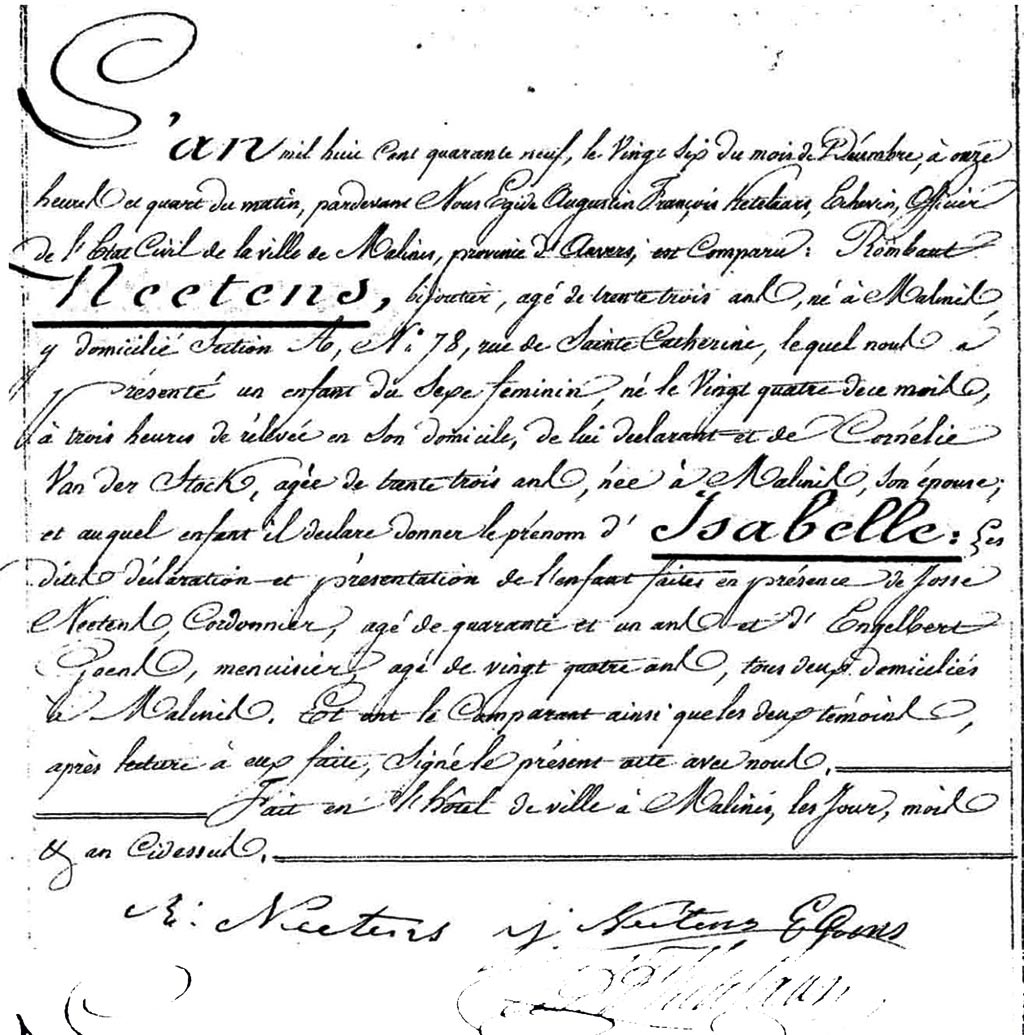 L'an mil huit cent quarante neuf, le Vingt Six du mois de Décembre, à onze
heures et quart du matin, pardevant Nous Egide Augustin François Ketelaars, Echevin, Officier
de l'Etat Civil de la ville de Malines, province d'Anvers, est Comparu: Rombaut
Neetens, bijoutier, agé de trente trois ans, né à Malines,
y domicilié Section A, N.º 78, rue de Sainte Catherine, lequel nous a
présenté un enfant du Sexe feminin, né le Vingt quatre de ce mois,
à trois heures de rélévée en Son domicile, de lui declarant et de Cornélie
Van der Stock, agée de trente trois ans, née à Malines, Son épouse;
et auquel enfant il declare donner le prénom d'Isabelle: Les
dites déclaration et présentation de l'enfant faites en présence de Josse
Neetens, Cordonnier, agé de quarante et un ans et d'Engelbert
Goens, menuisier, agé de vingt quatre ans, tous deux domiciliés
à Malines. Et ont le Comparant ainsi que les deux témoins,
après lecture à eux faite, Signé le présent acte avec nous.
Fait en l'hôtel de ville à Malines, les Jour, mois
& an Cidessus.
R: Neetens J. Neetens E Goens